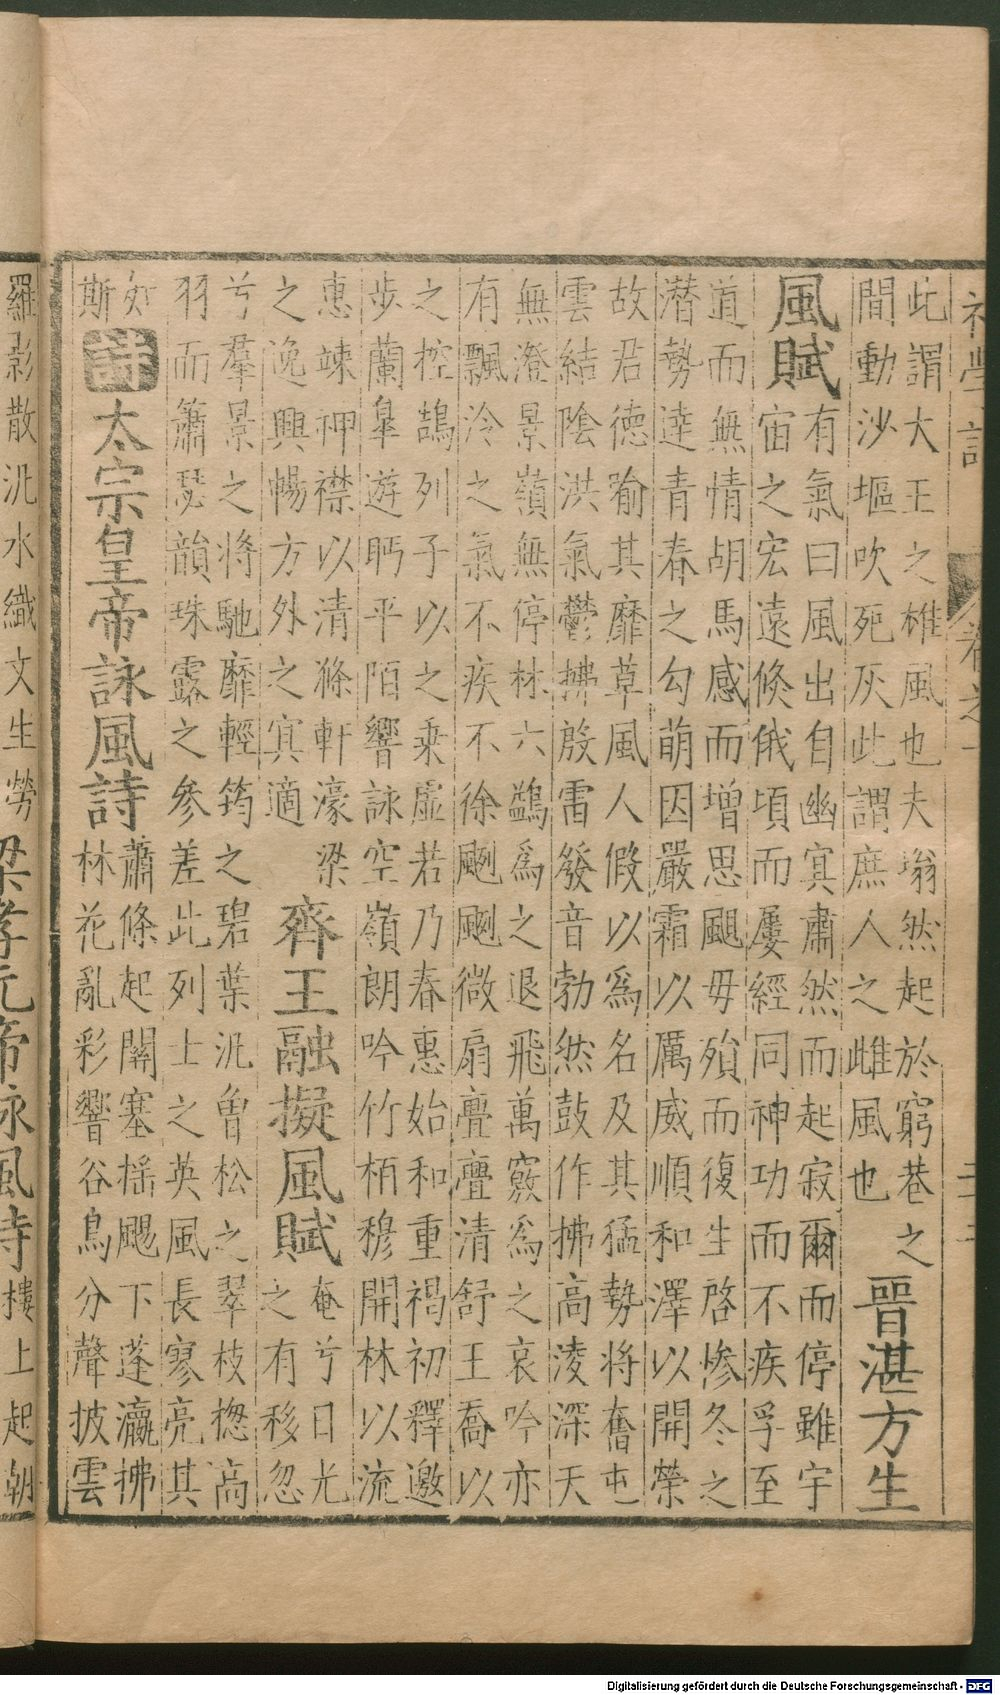 此謂大王之雄風也夫塕然起於窮巷之
間動沙堀吹死灰此謂庶人之雌風也
晉湛方生
風賦
有氣曰風出自幽寘肅然而起寂爾而停雖宇
宙之宏遠倏俄頃而屢經同神功而不疾孚至
道而無情胡馬感而增思颶毋殞而復生啓慘冬之
潜勢達青春之勾萌因嚴霜以厲威順和澤以開榮
故君德喻其靡草風人假以為名及其猛勢將奮屯
雲結陰洪氣鬱拂殷雷發音勃然鼓作拂高淩深天
無澄景嶺無停林六鷁爲之退飛萬竅爲之哀吟亦
有飄泠之氣不疾不徐颮颮微扇亹亹清舒王喬以
之控鵠列子以之乗虛若乃春惠始和重褐初釋邀
步蘭臯遊眄平陌響詠空嶺朗吟竹栢穆開林以流
惠竦神襟以清滌軒濠梁
之逸興暢方外之寘適
齊王融擬風賦
奄兮日光
之有移忽
兮羣景之將馳靡輕筠之碧葉汎曽松之翠枝揔高
羽而簫瑟韻珠露之參差此列士之英風長寥亮其
如
斯
詩
太宗皇帝詠風詩
蕭條起關塞揺颺下蓬瀛拂
林花亂彩響谷鳥分聲披雲
羅影散汎水織文生勞
梁孝元帝詠風詩
樓上起朝
Digitalisierung gefördert durch die Deutsche Forschungsgemeinschaft - DFG